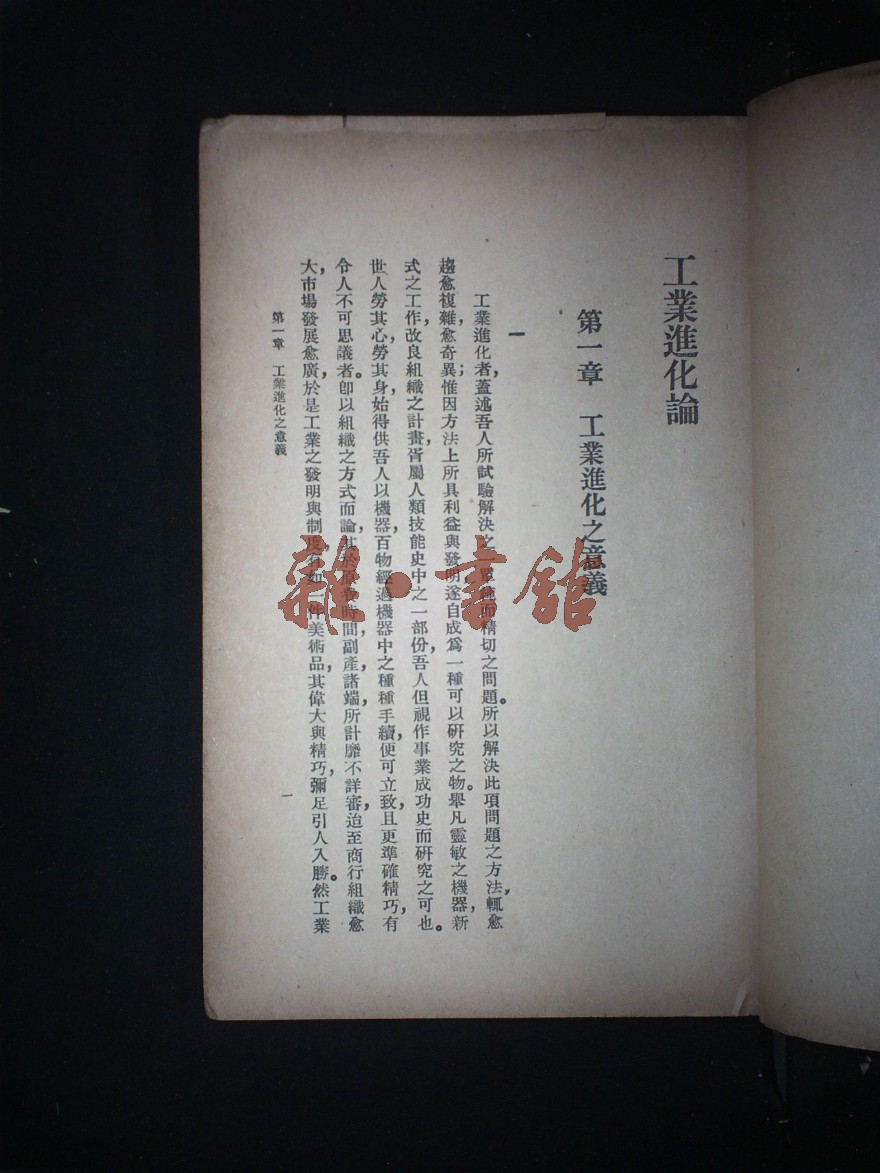 工業進化論
第一章 工業進化之意義
一
工業進化者，蓋述吾人所試驗解決之一單純而精切之問題。所以解決此項問題之方法，輒愈
趨愈複雜，愈奇異；惟因方法上所具利益與發明，遂自成爲一種可以研究之物。舉凡靈敏之機器，新
式之工作，改良組織之計畫，胥屬人類技能史中之一部份，吾人但視作事業成功史而研究之可也。
世人勞其心，勞其身，始得供吾人以機器，百物經過機器中之種種手續，便可立致，且更準確精巧，有
令人不可思議者。卽以組織之方式而論，其於 時間，副產諸端，所計靡不詳審，迨至商行組織愈
大，市場發展愈廣，於是工業之發明與制度，有如一件美術品，其偉大與精巧，彌足引人入勝。然工業
第一章 工業進化之意義
一
雜·書館